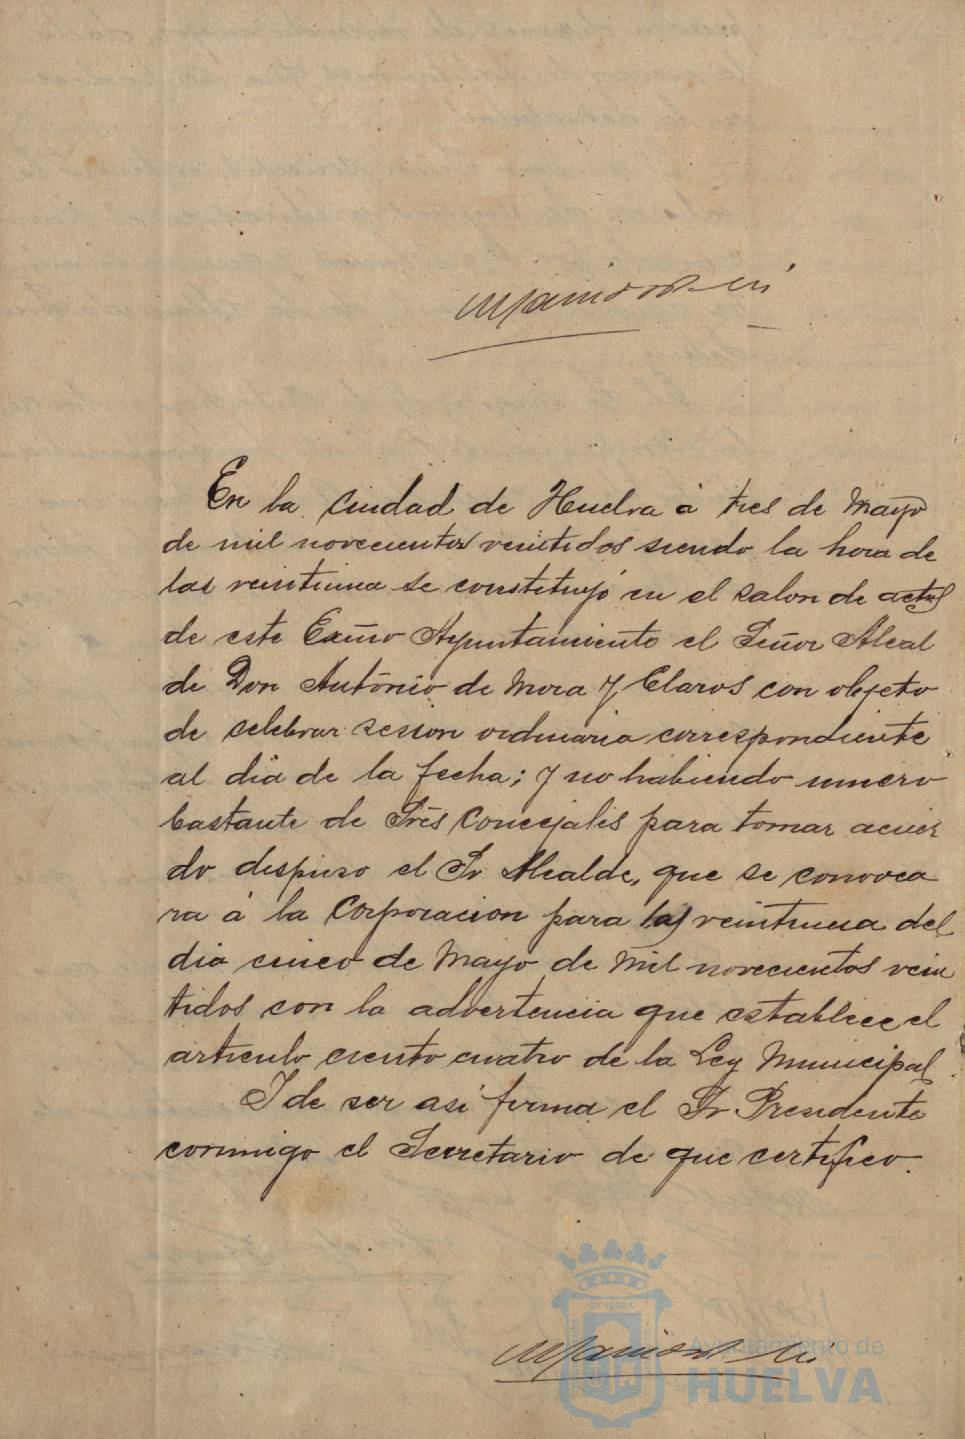 En la ciudad de Huelva á tres de Mayo
de mil novecientos veintidos siendo la hora de
las veintiuna se constituyó en el salon de actos
de este Excmo Ayuntamiento el Señor Alcal
de Don António de Mora y Claros con objeto
de celebrar sesion ordinaria correspondiente
al dia de la fecha; y no habiendo número
bastante de Srēs Concejales para tomar acuer
do dispuso el Sr Alcalde, que se convoca
ra á la Corporacion para las veintiuna del
dia cinco de Mayo de mil novecientos vein
tidos con la advertencia que establece el
articulo ciento cuatro de la Ley Municipal.
Y de ser así firma el Sr Presidente
conmigo el Secretario de que certifico.
Ayuntamiento de
HUELVA